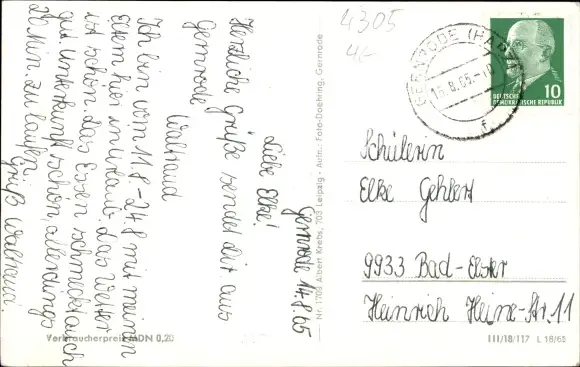 Gernrode 14.8.65
Liebe Elke!
Herzliche Grüße sendet dir aus
Gernrode
Waltraud
Ich bin vom 11.8-24.8 mit meinen
Eltern hier in Urlaub. Das Wetter
ist schön. Das Essen schmeckt auch
gut. Unterkunft schön, allerdings
zu laufen.
Gruß Waltraud.
Verbraucherpreis MDN 0,20
Nr. 1703 Albert Krebs, 703 Leipzig - Aufn.: Foto-Doehring, Gernrode
4305
4,-
GERNRODE (HARZ)
15.8.65.-10
r
10
DEUTSCHE
DEMOKRATISCHE REPUBLIK
Schülerin
Elke Gehlert
9933 Bad-Elster
Heinrich Heine-Str. 11
III/18/117 L 18/65